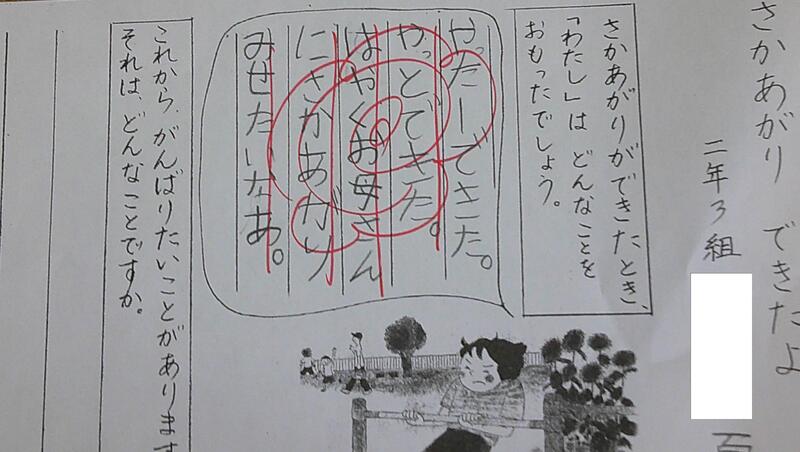 さかあがり できたよ
二年3組
さかあがりができたとき、
「わたし」は どんなことを
おもったでしょう。
やったーできた。
やっとできた。
はやくお母さん
にさかあがり
みせたいなあ。
これから、がんばりたいことがあります
それは、どんなことですか。